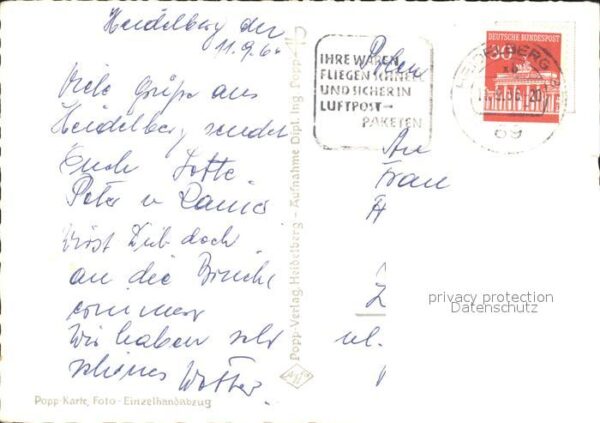 Heidelberg den
11.9.66
Viele Grüße aus
Heidelberg sendet
Euch Lotte
Peter u
doch
an die
kommen
Wir haben sehr
schönes Wetter.
Popp Karte, Foto - Einzelhandabzug
Popp-Verlag, Heidelberg - Aufnahme Dipl. Ing. Popp
IHRE WAREN
FLIEGEN SCHNELL
UND SICHER IN
LUFTPOST-
PAKETEN
DEUTSCHE BUNDESPOST
30
HEIDELBERG
69
Polen
An
Frau
H
Z
ul.
privacy protection
Datenschutz